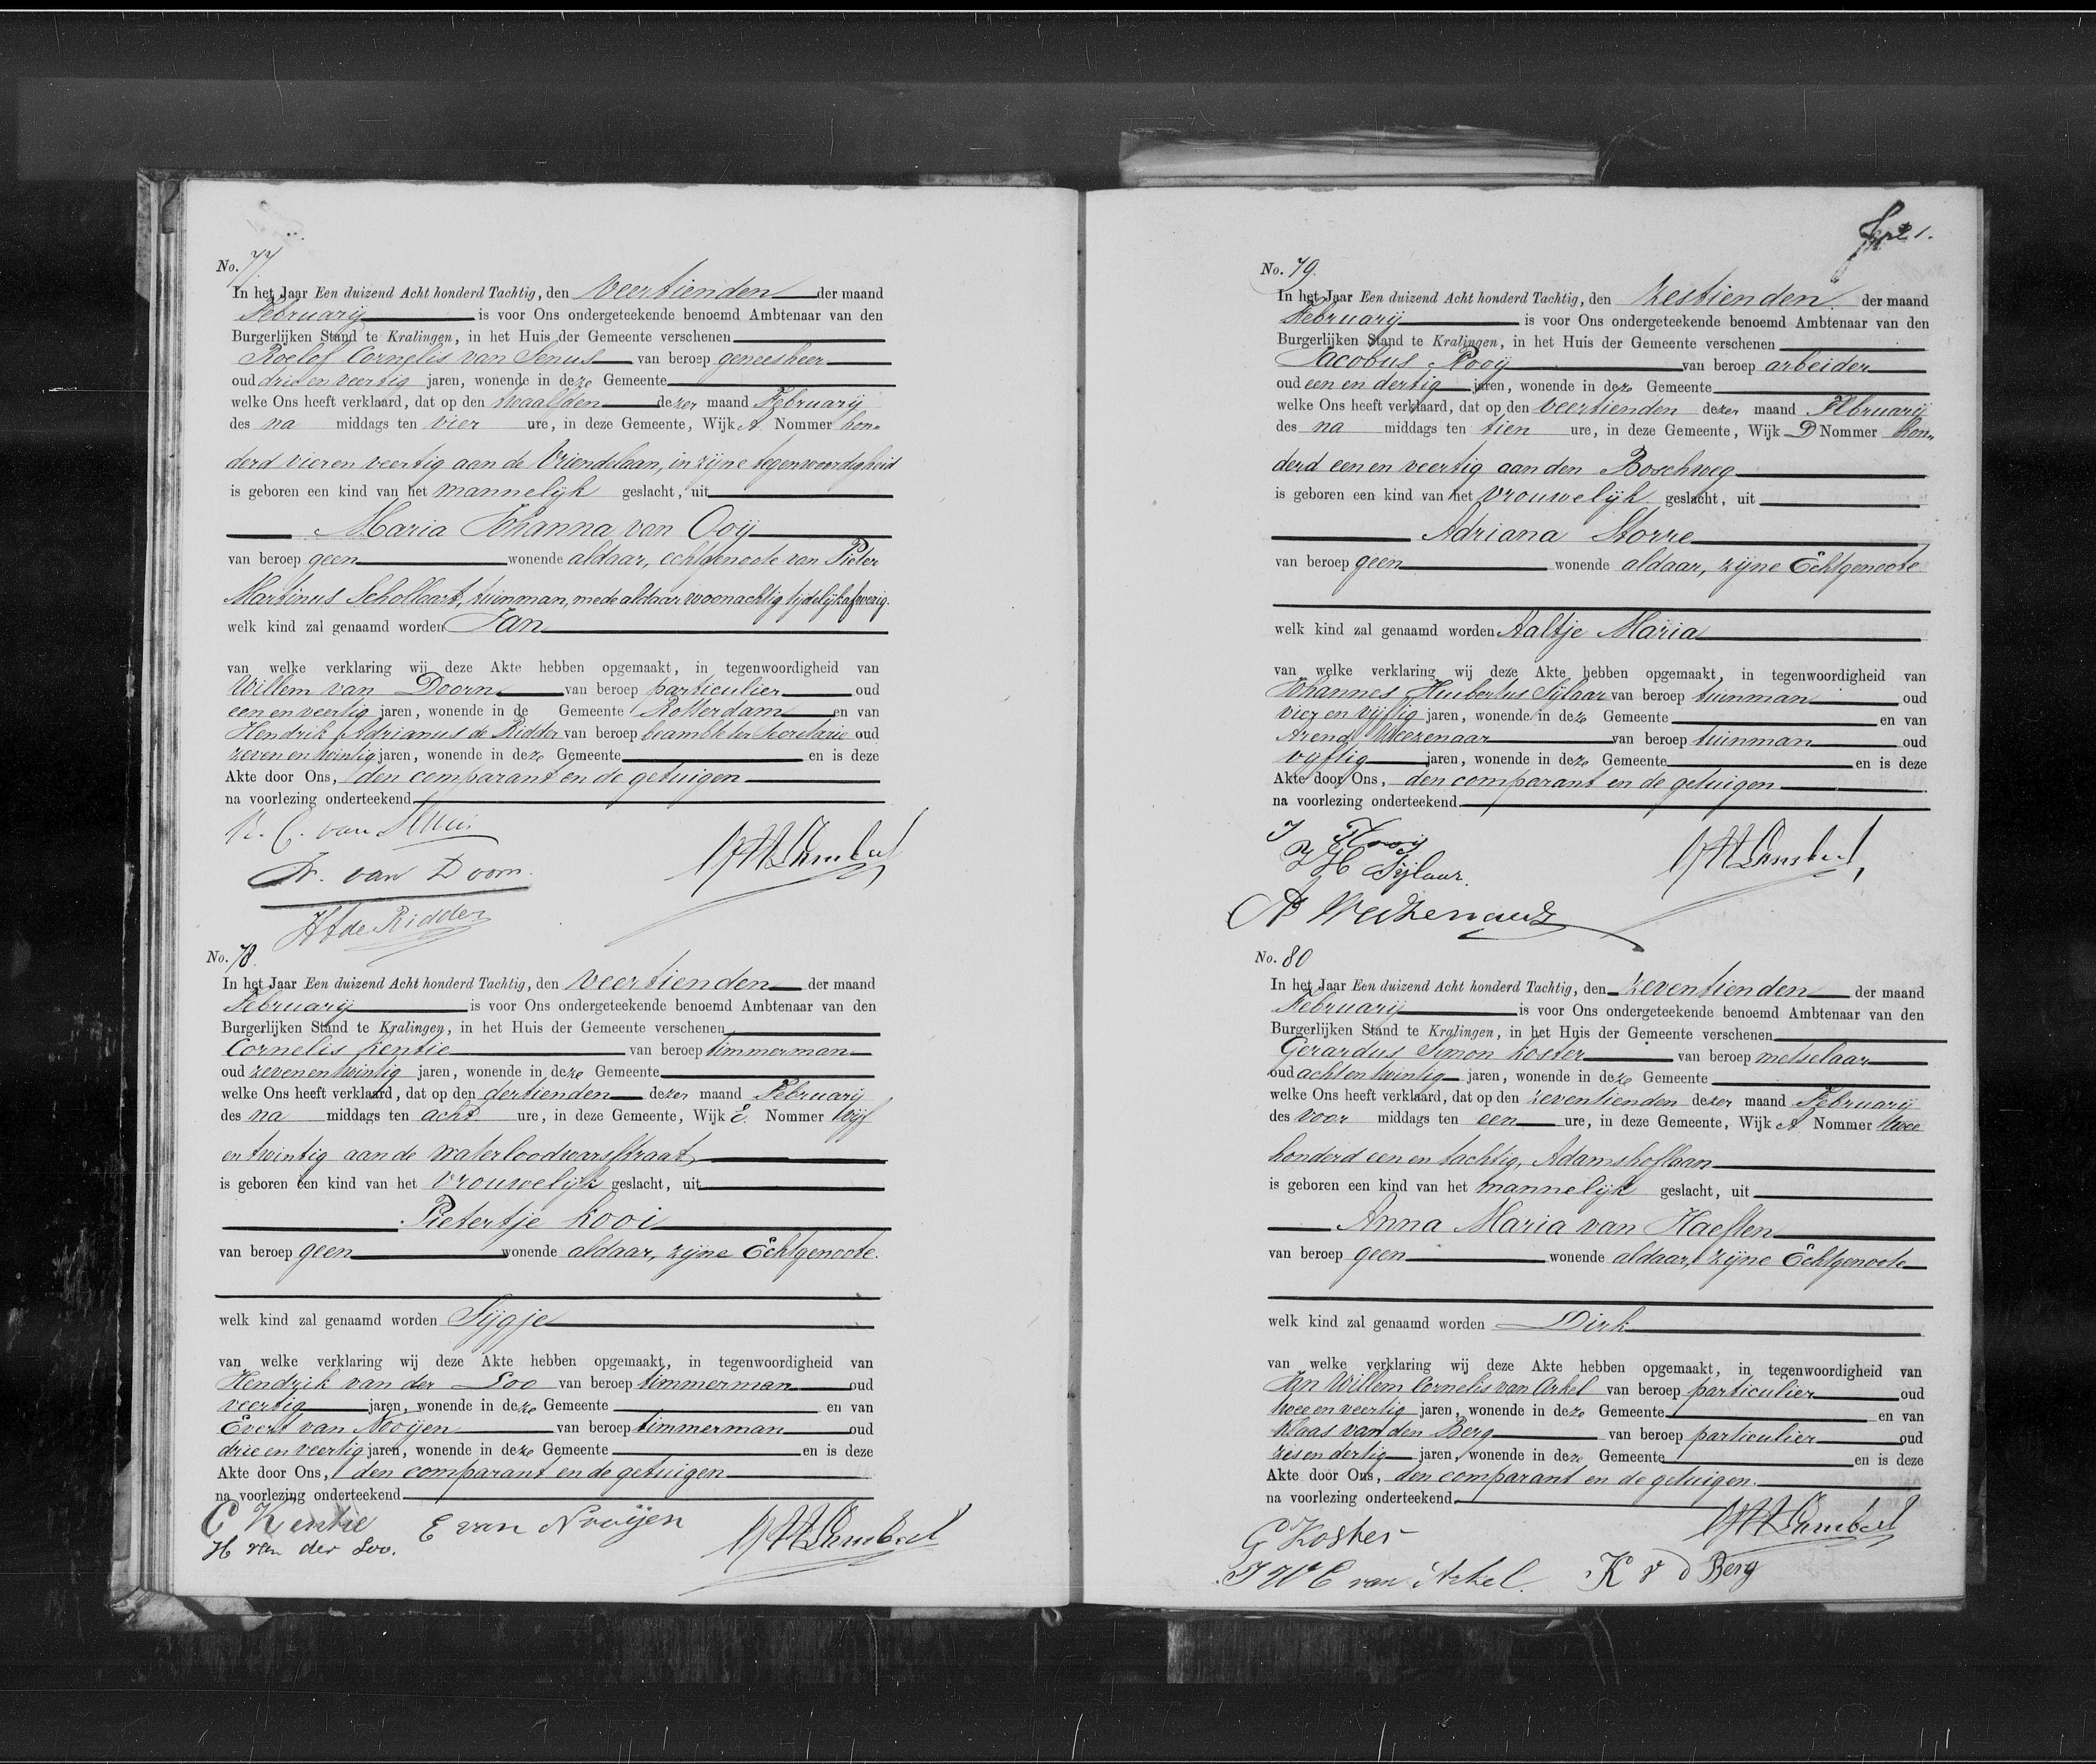 No. 77.
In het Jaar Een duizend Acht honderd Tachtig, den veertienden der maand
Februarij is voor Ons ondergeteekende benoemd Ambtenaar van den
Burgerlijken Stand te Kralingen, in het Huis der Gemeente verschenen
Roelof Cornelis van Senus van beroep geneesheer
oud drie en veertig jaren, wonende in deze Gemeente
welke Ons heeft verklaard, dat op den twaalfden dezer maand Februarij
des na middags ten vier ure, in deze Gemeente, Wijk A Nommer hon=
derd vier en veertig aan de Vriendelaan, in zijne tegenwoordigheid
is geboren een kind van het mannelijk geslacht, uit
Maria Johanna van Ooij
van beroep geen wonende aldaar, echtgenoote van Pieter
Martinus Schollaart, tuinman, mede aldaar woonachtig tijdelijk afwezig.
welk kind zal genaamd worden Jan
van welke verklaring wij deze Akte hebben opgemaakt, in tegenwoordigheid van
Willem van Doorn van beroep particulier oud
een en veertig jaren, wonende in de Gemeente Rotterdam en van
Hendrik Adrianus de Ridder van beroep beambte ter Secretarie oud
zeven en twintig jaren, wonende in deze Gemeente en is deze
Akte door Ons, den comparant en de getuigen
na voorlezing onderteekend
R. C. van Senus
W. van Doorn.
HA de Ridder
No. 78.
In het Jaar Een duizend Acht honderd Tachtig, den veertienden der maand
Februarij is voor Ons ondergeteekende benoemd Ambtenaar van den
Burgerlijken Stand te Kralingen, in het Huis der Gemeente verschenen
Cornelis Kentie van beroep timmerman
oud zeven en twintig jaren, wonende in deze Gemeente
welke Ons heeft verklaard, dat op den dertienden dezer maand Februarij
des na middags ten acht ure, in deze Gemeente, Wijk E. Nommer vijf
en twintig aan de Waterloodwarsstraat
is geboren een kind van het vrouwelijk geslacht, uit
Pietertje Kooi
van beroep geen wonende aldaar, zijne Echtgenoote.
welk kind zal genaamd worden Sijgje
van welke verklaring wij deze Akte hebben opgemaakt, in tegenwoordigheid van
Hendrik van der Loo van beroep timmerman oud
veertig jaren, wonende in deze Gemeente en van
Evert van Nooijen van beroep timmerman oud
drie en veertig jaren, wonende in deze Gemeente en is deze
Akte door Ons, den comparant en de getuigen
na voorlezing onderteekend
C Kentie E van Nooijen
H van der Loo.
21.
No. 79.
In het Jaar Een duizend Acht honderd Tachtig, den zestienden der maand
Februarij is voor Ons ondergeteekende benoemd Ambtenaar van den
Burgerlijken Stand te Kralingen, in het Huis der Gemeente verschenen
Jacobus Rooij van beroep arbeider
oud een en dertig jaren, wonende in deze Gemeente
welke Ons heeft verklaard, dat op den veertienden dezer maand Februarij
des na middags ten tien ure, in deze Gemeente, Wijk D Nommer hon=
derd een en veertig aan den Boschweg
is geboren een kind van het vrouwelijk geslacht, uit
Adriana Storre
van beroep geen wonende aldaar, zijne Echtgenoote
welk kind zal genaamd worden Aaltje Maria
van welke verklaring wij deze Akte hebben opgemaakt, in tegenwoordigheid van
Johannes Huibertus Sijlaar van beroep tuinman oud
vier en vijftig jaren, wonende in deze Gemeente en van
Arend Weezenaar van beroep tuinman oud
vijftig jaren, wonende in deze Gemeente en is deze
Akte door Ons, den comparant en de getuigen
na voorlezing onderteekend
J Rooij
J H Sijlaar.
No. 80
In het Jaar Een duizend Acht honderd Tachtig, den zeventienden der maand
Februarij is voor Ons ondergeteekende benoemd Ambtenaar van den
Burgerlijken Stand te Kralingen, in het Huis der Gemeente verschenen
Gerardus Simon Koster van beroep metselaar
oud acht en twintig jaren, wonende in deze Gemeente
welke Ons heeft verklaard, dat op den zeventienden dezer maand Februarij
des voor middags ten een ure, in deze Gemeente, Wijk A Nommer twee
honderd een en tachtig, Adamshoflaan
is geboren een kind van het mannelijk geslacht, uit
Anna Maria van Haeften
van beroep geen wonende aldaar, zijne Echtgenoote
welk kind zal genaamd worden Dirk
van welke verklaring wij deze Akte hebben opgemaakt, in tegenwoordigheid van
Jan Willem Cornelis van Arkel van beroep particulier oud
twee en veertig jaren, wonende in deze Gemeente en van
Klaas van den Berg van beroep particulier oud
zes en dertig jaren, wonende in deze Gemeente en is deze
Akte door Ons, den comparant en de getuigen.
na voorlezing onderteekend
G Koster
J W C van Arkel. K v d Berg